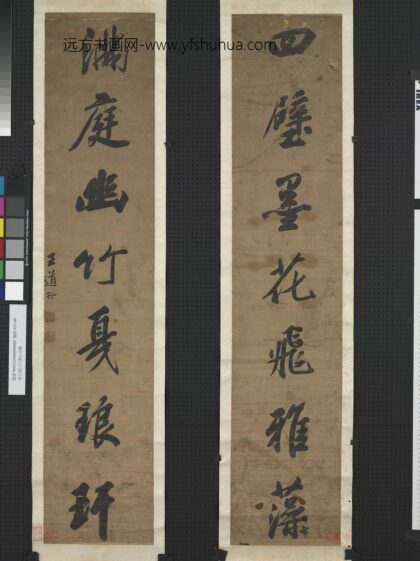 远方书画网-www.yfshuhua.com
四壁墨花飛雅藻
滿庭幽竹戛琅玕
王道行